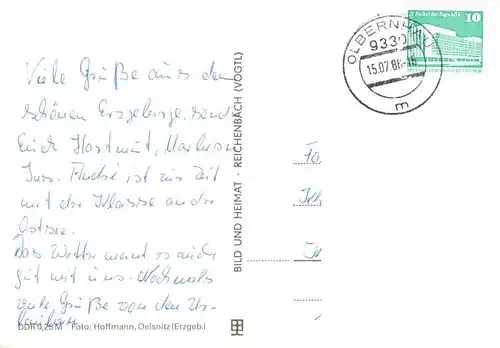 Viele Grüße aus dem
schönen Erzgebirge senden
Euch Hartmut, Marlies u.
Jens. André ist zur Zeit
mit der Klasse an der
Ostsee.
Das Wetter meint es auch
gut mit uns. Nochmals
viele Grüße von den Ur-
laubern
DDR 0,25 M Foto: Hoffmann, Oelsnitz (Erzgeb.)
BILD UND HEIMAT · REICHENBACH (VOGTL)
OLBERNHAU
9330
15.07.86-18
m
Palast der Republik 10
DDR